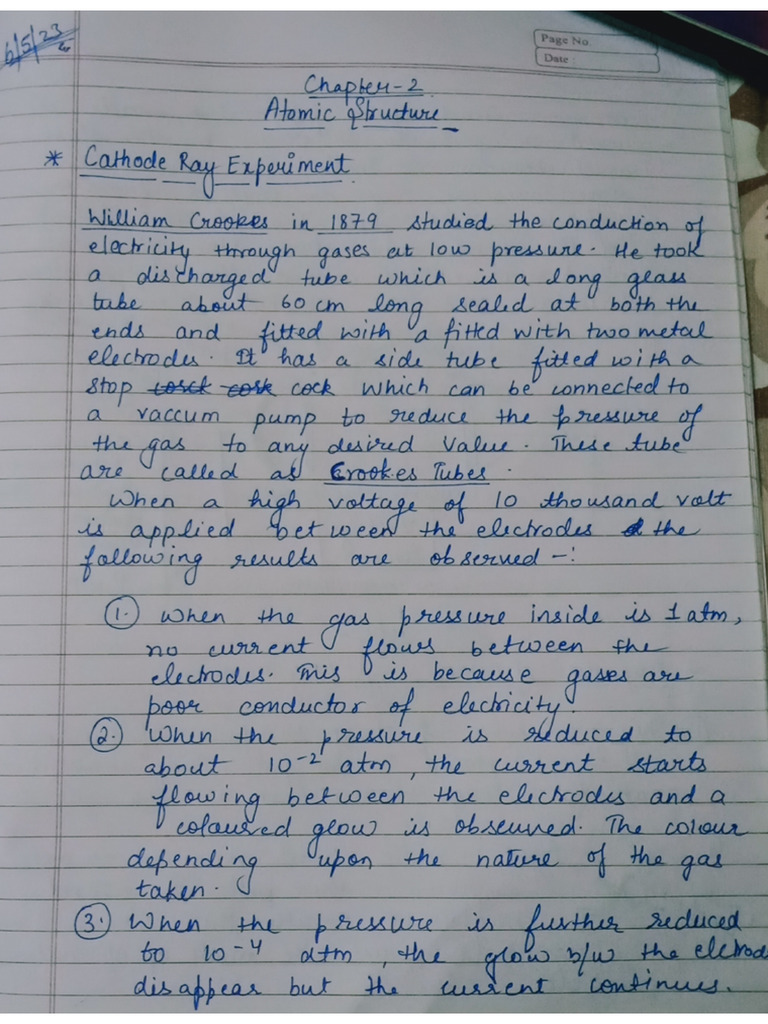 6/5/23
Page No.
Date :
Chapter-2
Atomic Structure
* Cathode Ray Experiment
William Crookes in 1879 studied the conduction of
electricity through gases at low pressure. He took
a discharged tube which is a long glass
tube about 60 cm long sealed at both the
ends and fitted with a fitted with two metal
electrodes. It has a side tube fitted with a
stop cock which can be connected to
a vaccum pump to reduce the pressure of
the gas to any desired value. These tube
are called as Crookes Tubes.
When a high voltage of 10 thousand volt
is applied between the electrodes the
following results are observed -:
1. When the gas pressure inside is 1 atm,
no current flows between the
electrodes. This is because gases are
poor conductor of electricity.
2. When the pressure is reduced to
about 10⁻² atm, the current starts
flowing between the electrodes and a
coloured glow is observed. The colour
depending upon the nature of the gas
taken.
3. When the pressure is further reduced
to 10⁻⁴ atm, the glow b/w the elctrod
disappear but the current continues.